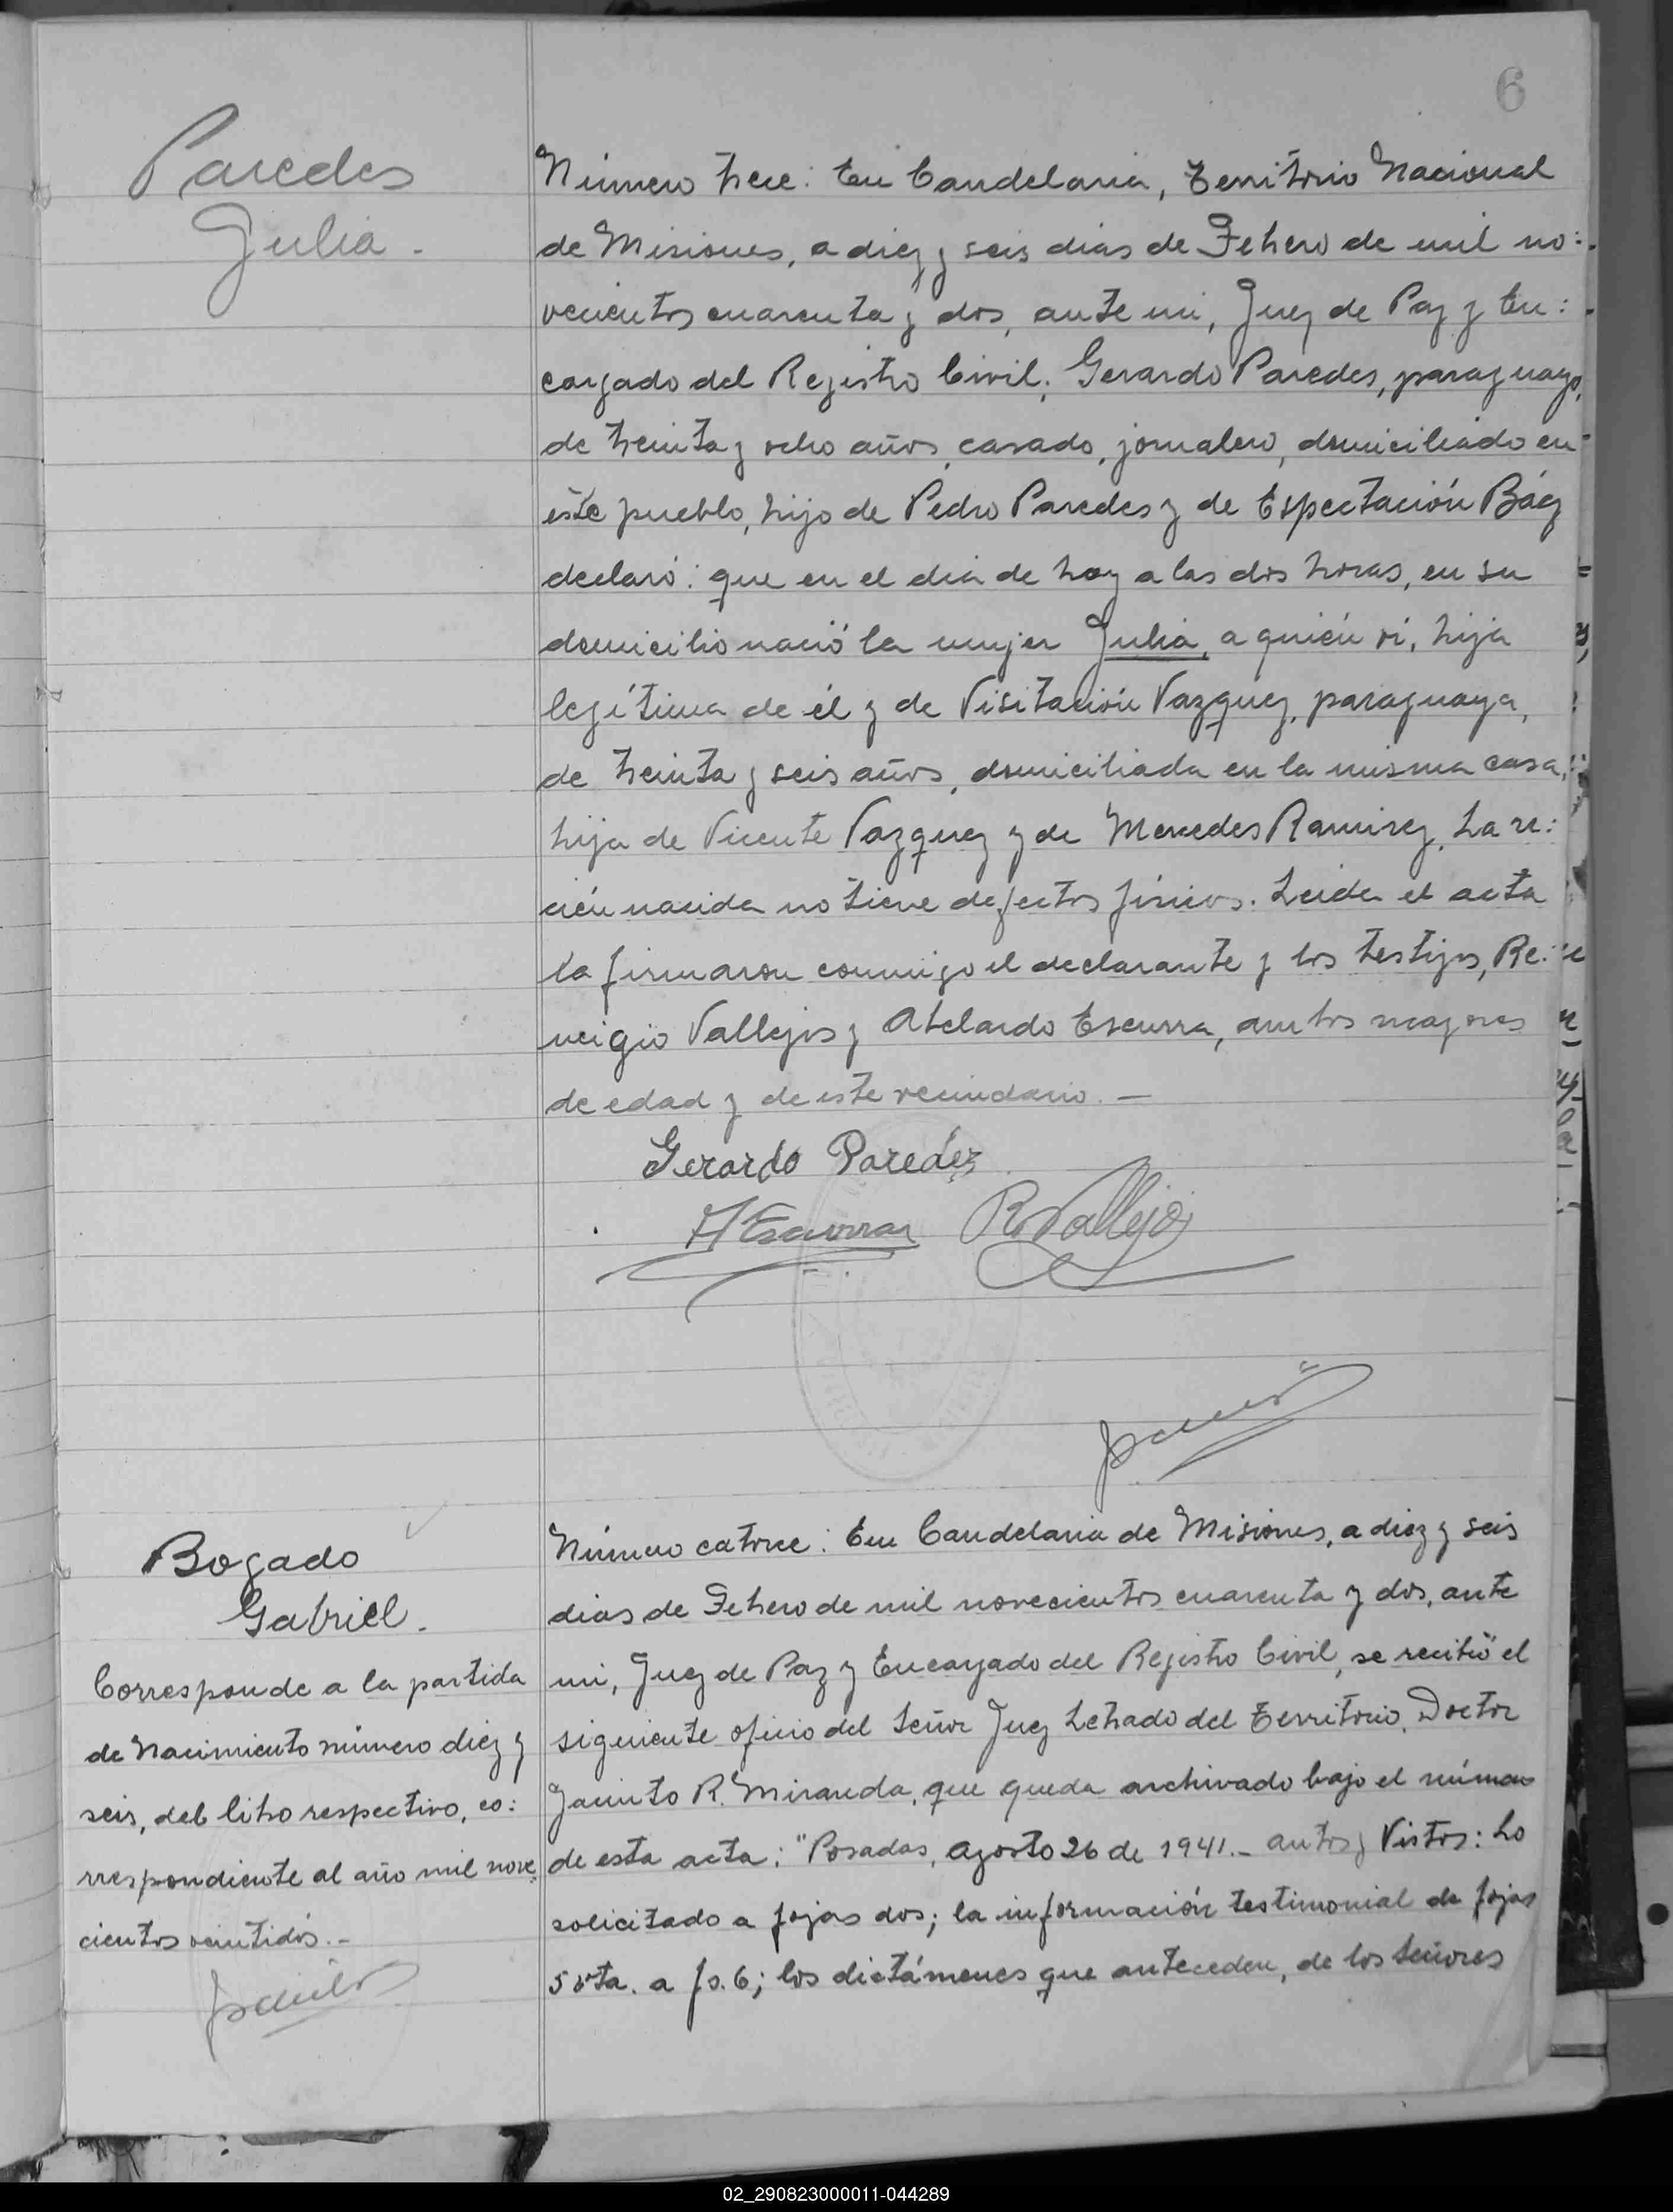 6
Paredes
Julia.
Número trece: En Candelaria, Territorio Nacional
de Misiones, a diez y seis dias de Febrero de mil no:
vecientos cuarenta y dos, ante mi, Juez de Paz y En:
cargado del Registro Civil, Gerardo Paredes, paraguayo,
de treinta y ocho años, casado, jornalero, domiciliado en
este pueblo, hijo de Pedro Paredes y de Espectación Báez
declaró: que en el dia de hoy a las dos horas, en su
domicilio nació la mujer Julia, a quién ví, hija
legítima de él y de Visitación Vazquez, paraguaya,
de treinta y seis años, domiciliada en la misma casa,
hija de Vicente Vazquez y de Mercedes Ramirez. La re:
cién nacida no tiene defectos físicos. Leida el acta
la firmaron conmigo el declarante y los testigos, Re:
migio Vallejos y Abelardo Escurra, ambos mayores
de edad y de este vecindario. —
Gerardo Paredes
A Escurra R Vallejos
Bogado
Gabriel.
Corresponde a la partida
de Nacimiento número diez y
seis, del libro respectivo, co:
rrespondiente al año mil nove:
cientos veintidós.-
Número catorce: En Candelaria de Misiones, a diez y seis
dias de Febrero de mil novecientos cuarenta y dos, ante
mi, Juez de Paz y Encargado del Registro Civil, se recibió el
siguiente oficio del Señor Juez Letrado del Territorio, Doctor
Jacinto R. Miranda, que queda archivado bajo el número
de esta acta: "Posadas, Agosto 26 de 1941.- autos y Vistos: Lo
solicitado a fojas dos; la información testimonial de fojas
5 vta. a fs. 6; los dictámenes que anteceden, de los Señores
02_290823000011-044289